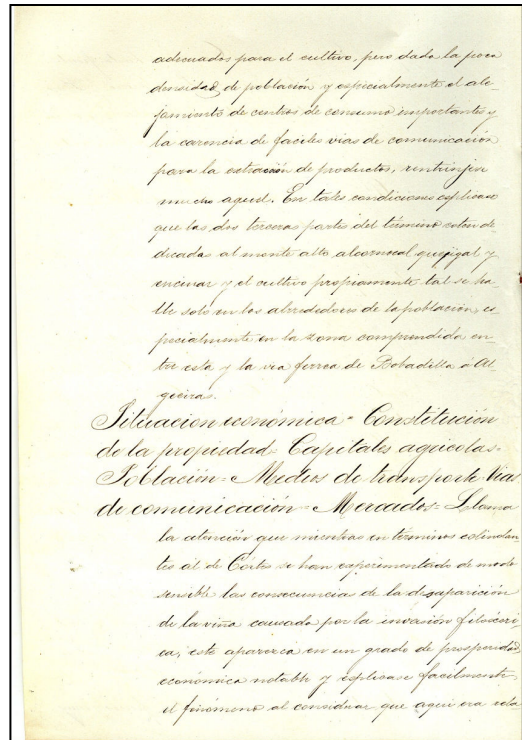 adecuados para el cultivo, pero dada la poca
densidad, de población y especialmente el ale-
jamiento de centros de consumo importantes y
la carencia de faciles vias de comunicación
para la extracción de productos, rentrinjese
mucho aquel. En tales condiciones esplicase
que las dos terceras partes del término esten de-
dicadas al monte alto alcornocal quejigal y
encinar y el cultivo propiamente tal se ha
lle solo en los alrededores de la población, es
pecialmente en la zona comprendida en
tre esta y la via ferrea de Bobadilla á Al
geciras.
Situacion económica = Constitución
de la propiedad = Capitales agricolas =
Población = Medios de transporte Vias
de comunicación = Mercados = Llama
la atención que mientras en términos colindan
tes al de Cortes se han experimentado de modo
sensible las consecuencia de la desaparición
de la viña causado por la invasión filoxéri
ca, este aparezca en un grado de prosperidad
económica notable y esplicase facilmente
el fenómeno al considerar que aqui era rela